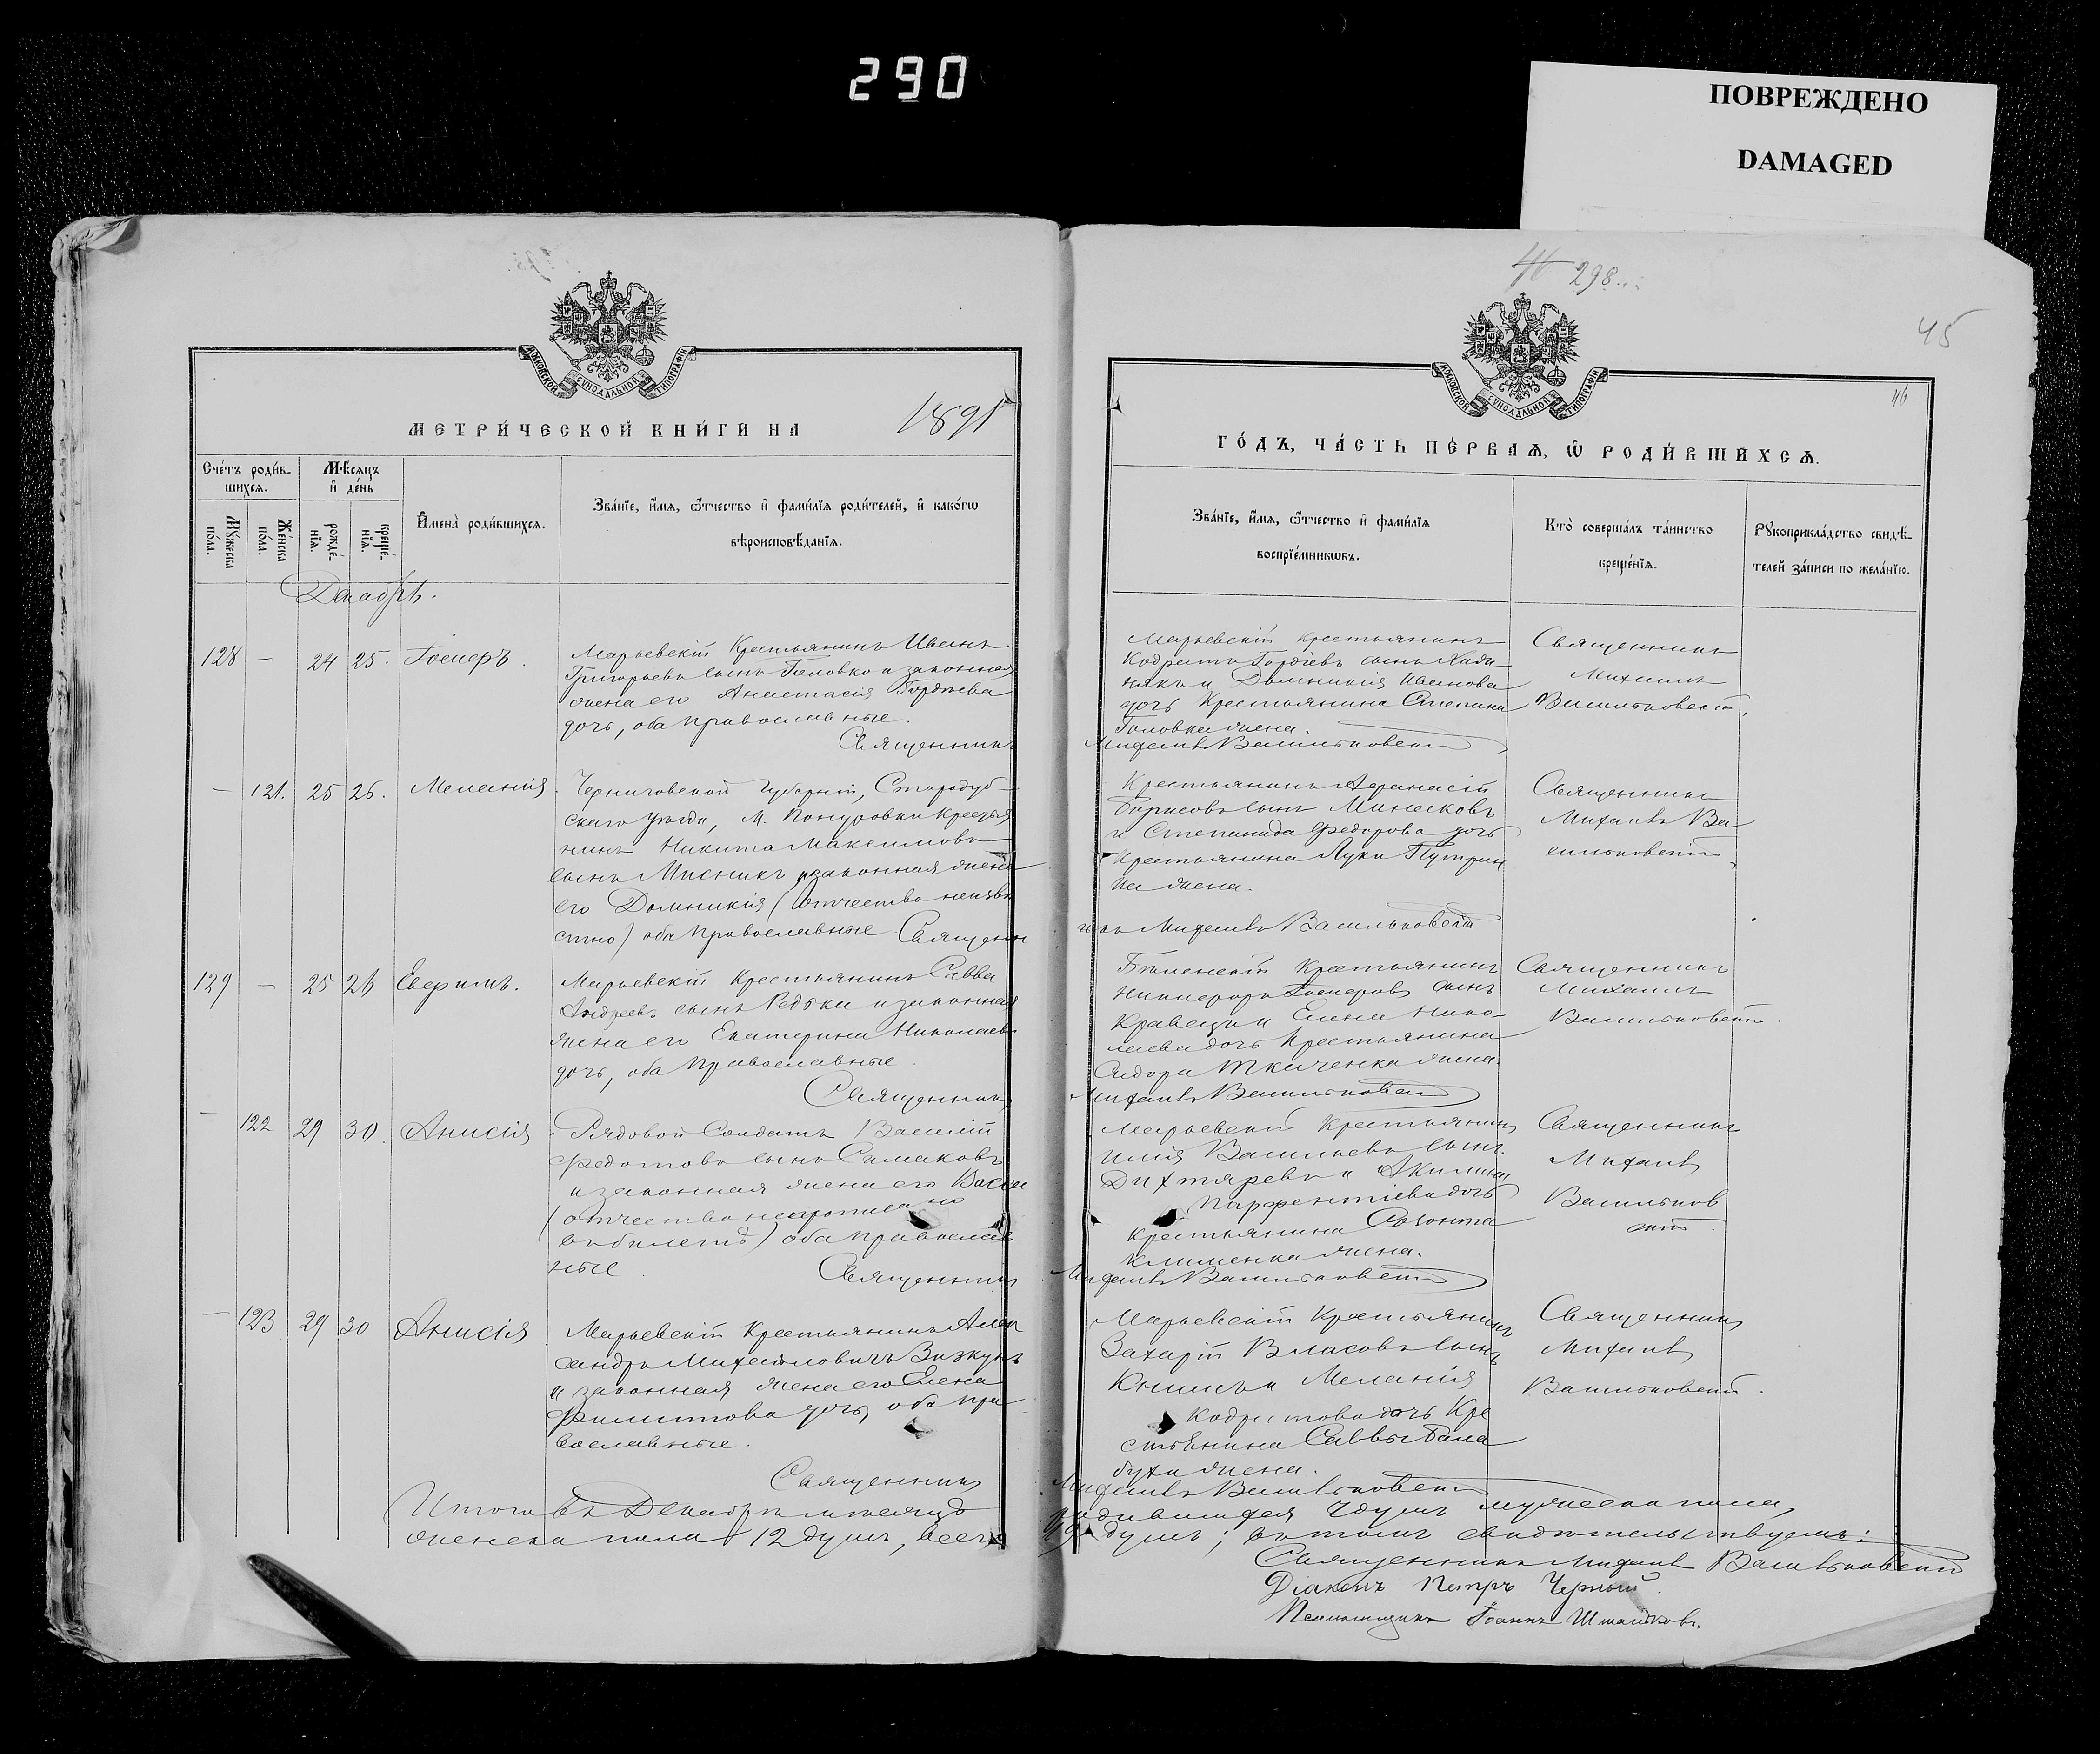 290
ПОВРЕЖДЕНО
DAMAGED
298
45
46
МОСКОВСКОЙ СѴНОДАЛЬНОЙ ТИПОГРАФІИ
МОСКОВСКОЙ СѴНОДАЛЬНОЙ ТИПОГРАФІИ
МЕТРИ́ЧЕСКОЙ КНИ́ГИ НА 1891
ГО́ДЪ, ЧА́СТЬ ПЕ́РВАѦ, Ѽ РОДИ́ВШИХСѦ.
Сче́тъ роди́в-
шихсѧ.
Мѣ́сѧцъ
и҆ де́нь
Му́жеска
по́ла.
Же́нска
по́ла.
рожде́-
нїѧ.
креще́-
нїѧ.
И҆мена̀ роди́вшихсѧ.
Зва́нїе, и҆́мѧ, ѻ҆́тчество и҆ фамилїѧ роди́телей, и҆ како́гѡ
вѣроисповѣ́данїѧ.
Зва́нїе, и҆́мѧ, ѻ҆́тчество и҆ фами́лїѧ
воспрїе́мникѡвъ.
Кто̀ соверша́лъ та́инство
креще́нїѧ.
Рꙋкоприкла́дство свидѣ́-
телей за́писи по жела́нїю.
Декабрь.
128 — 24 25. Іосифъ.
Марьевскій Крестьянинъ Иванъ
Григорьевъ сынъ Головко и законная
жена его Анастасія Гордѣева
дочь, оба православные.
Священникъ
Марьевскій крестьянинъ
Кодратъ Гордѣевъ сынъ
и Домникія Иванова
дочь Крестьянина Степана
Головка жена.
Михаилъ Васильковскій
Священникъ
Михаилъ
Васильковскій.
— 121. 25 26. Меланія.
Черниговской Губерніи, Стародуб-
скаго уѣзда, М. Понуровки Крестья
нинъ Никита Максимовъ
сынъ Мисникъ и законная жена
его Домникія (отчество неизвѣ
стно) оба православные Священ
Крестьянинъ Афанасій
Борисовъ сынъ Минаковъ
и Степанида Федорова дочь
Крестьянина Луки
жена.
никъ Михаилъ Васильковскій
Священникъ
Михаилъ Ва
сильковскій
129 — 25 26 Евфимъ.
Марьевскій Крестьянинъ Савва
Андреевъ сынъ Редька и законная
жена его Екатерина Николаева
дочь, оба православные.
Священникъ
Крестьянинъ
Никифоръ Іосифовъ сынъ
Кравецъ и Елена Нико-
лаева дочь Крестьянина
Сидора Ткаченка жена.
Михаилъ Васильковскій
Священникъ
Михаилъ
Васильковскій.
— 122 29 30. Анисія
Рядовой Солдатъ Василій
Федотовъ сынъ Симаковъ
и законная жена его Васса
(отчество непрописано
въ билетѣ) оба православ
ные. Священникъ
Марьевскій Крестьянинъ
Илія Васильевъ сынъ
Дихтяревъ и Акилина
Парфентіева дочь
крестьянина Созонта
Клименка жена.
Михаилъ Васильковскій
Священникъ
Михаилъ
Васильков
скій.
— 123 29 30 Анисія
Марьевскій Крестьянинъ Алек
сандръ Михайловичъ
и законная жена его Елена
Филиппова дочь, оба пра
вославные.
Священникъ
Марьевскій Крестьянинъ
Захарій Власовъ сынъ
и Меланія
Кодратова дочь Кре
стьянина Саввы Бала
бухи жена.
Михаилъ Васильковскій
Священникъ
Михаилъ
Васильковскій.
Итого въ Декабрѣ мѣсяцѣ
родившихся 7 душъ мужеска пола,
женска пола 12 душъ, всего
19 душъ; въ томъ свидѣтельствуемъ:
Священникъ Михаилъ Васильковскій
Діаконъ Петръ Черный.
Псаломщикъ Іоаннъ